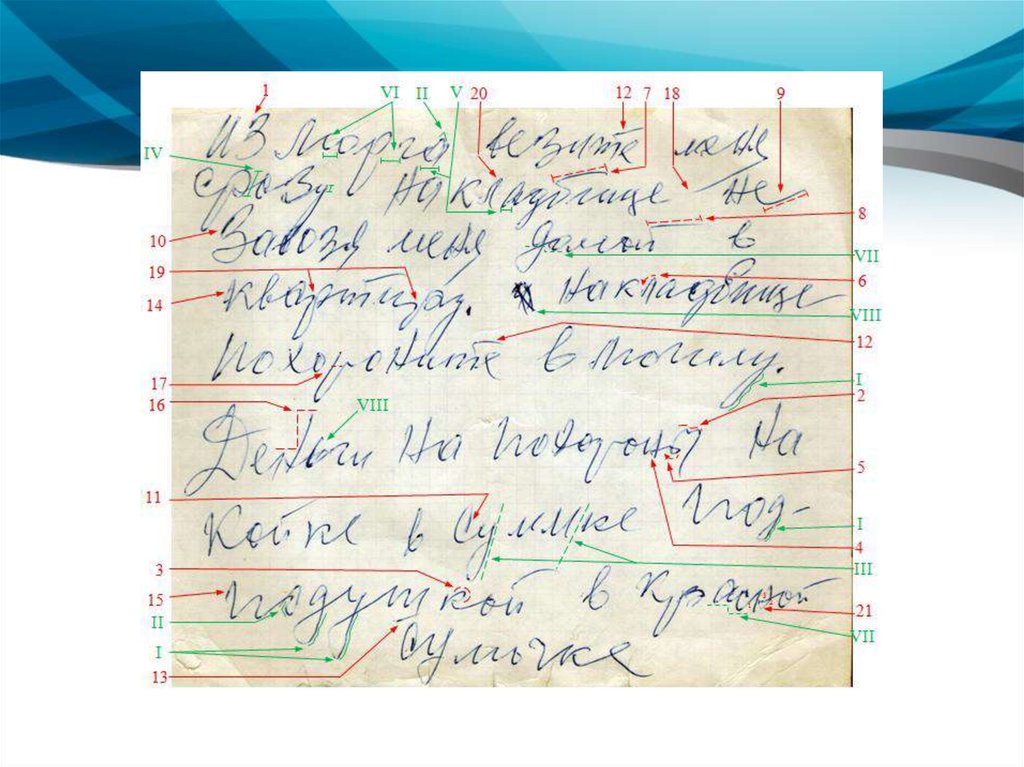 1 VI II V 20 12 7 18 9
Из морга везите меня
IV
сразу на кладбище не
8
10 Завозя меня домой в
VII
19 6
14 квартиру. на кладбище
VIII
12
похороните в могилу.
17 I
16 VIII 2
Деньги на похороны на
5
11
койке в суммке под- I
4
3 III
15 подушкой в красной 21
II VII
I
13 сумочке